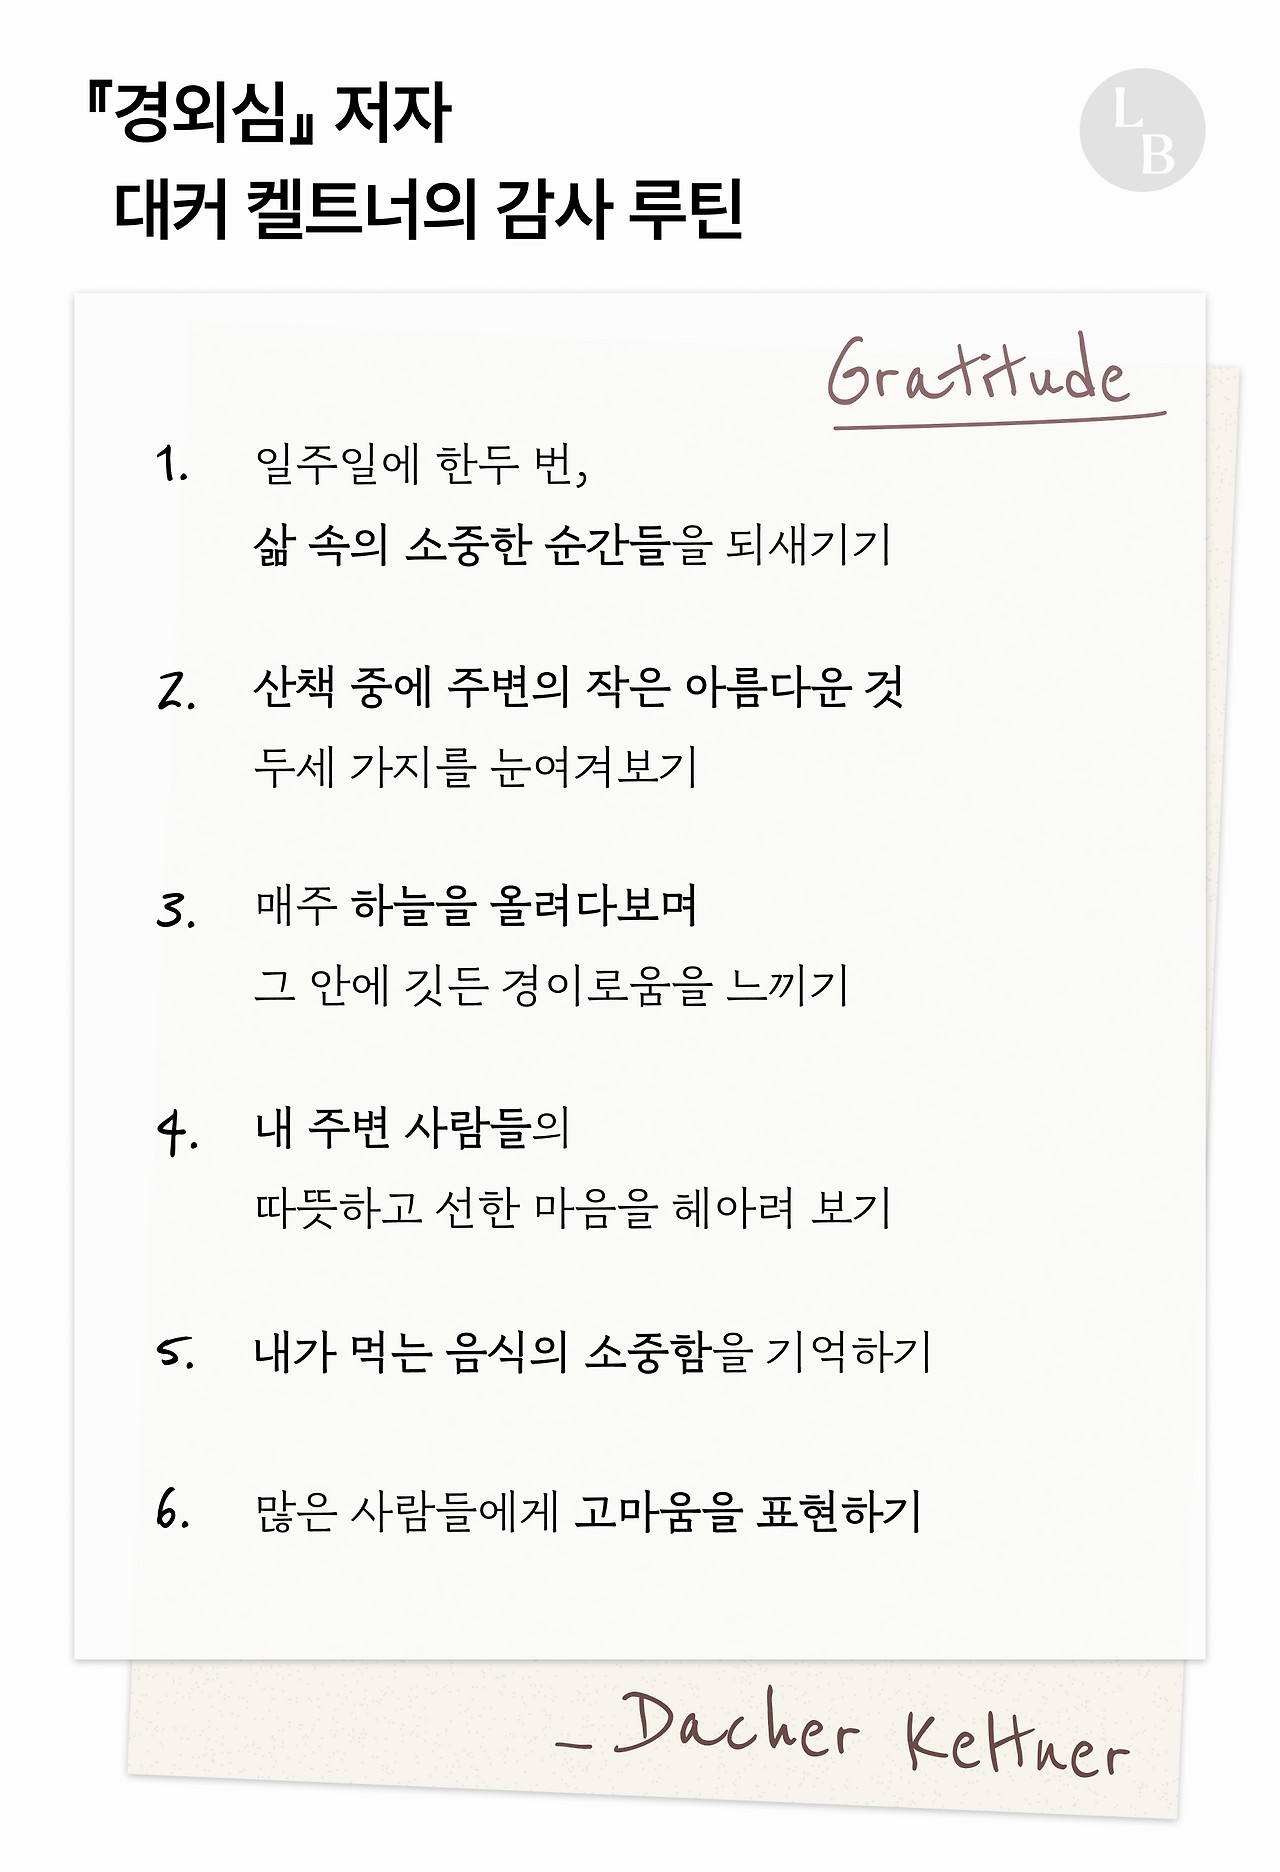 『경외심』 저자
대커 켈트너의 감사 루틴
L
B
Gratitude
1. 일주일에 한두 번,
삶 속의 소중한 순간들을 되새기기
2. 산책 중에 주변의 작은 아름다운 것
두세 가지를 눈여겨보기
3. 매주 하늘을 올려다보며
그 안에 깃든 경이로움을 느끼기
4. 내 주변 사람들의
따뜻하고 선한 마음을 헤아려 보기
5. 내가 먹는 음식의 소중함을 기억하기
6. 많은 사람들에게 고마움을 표현하기
– Dacher Keltner